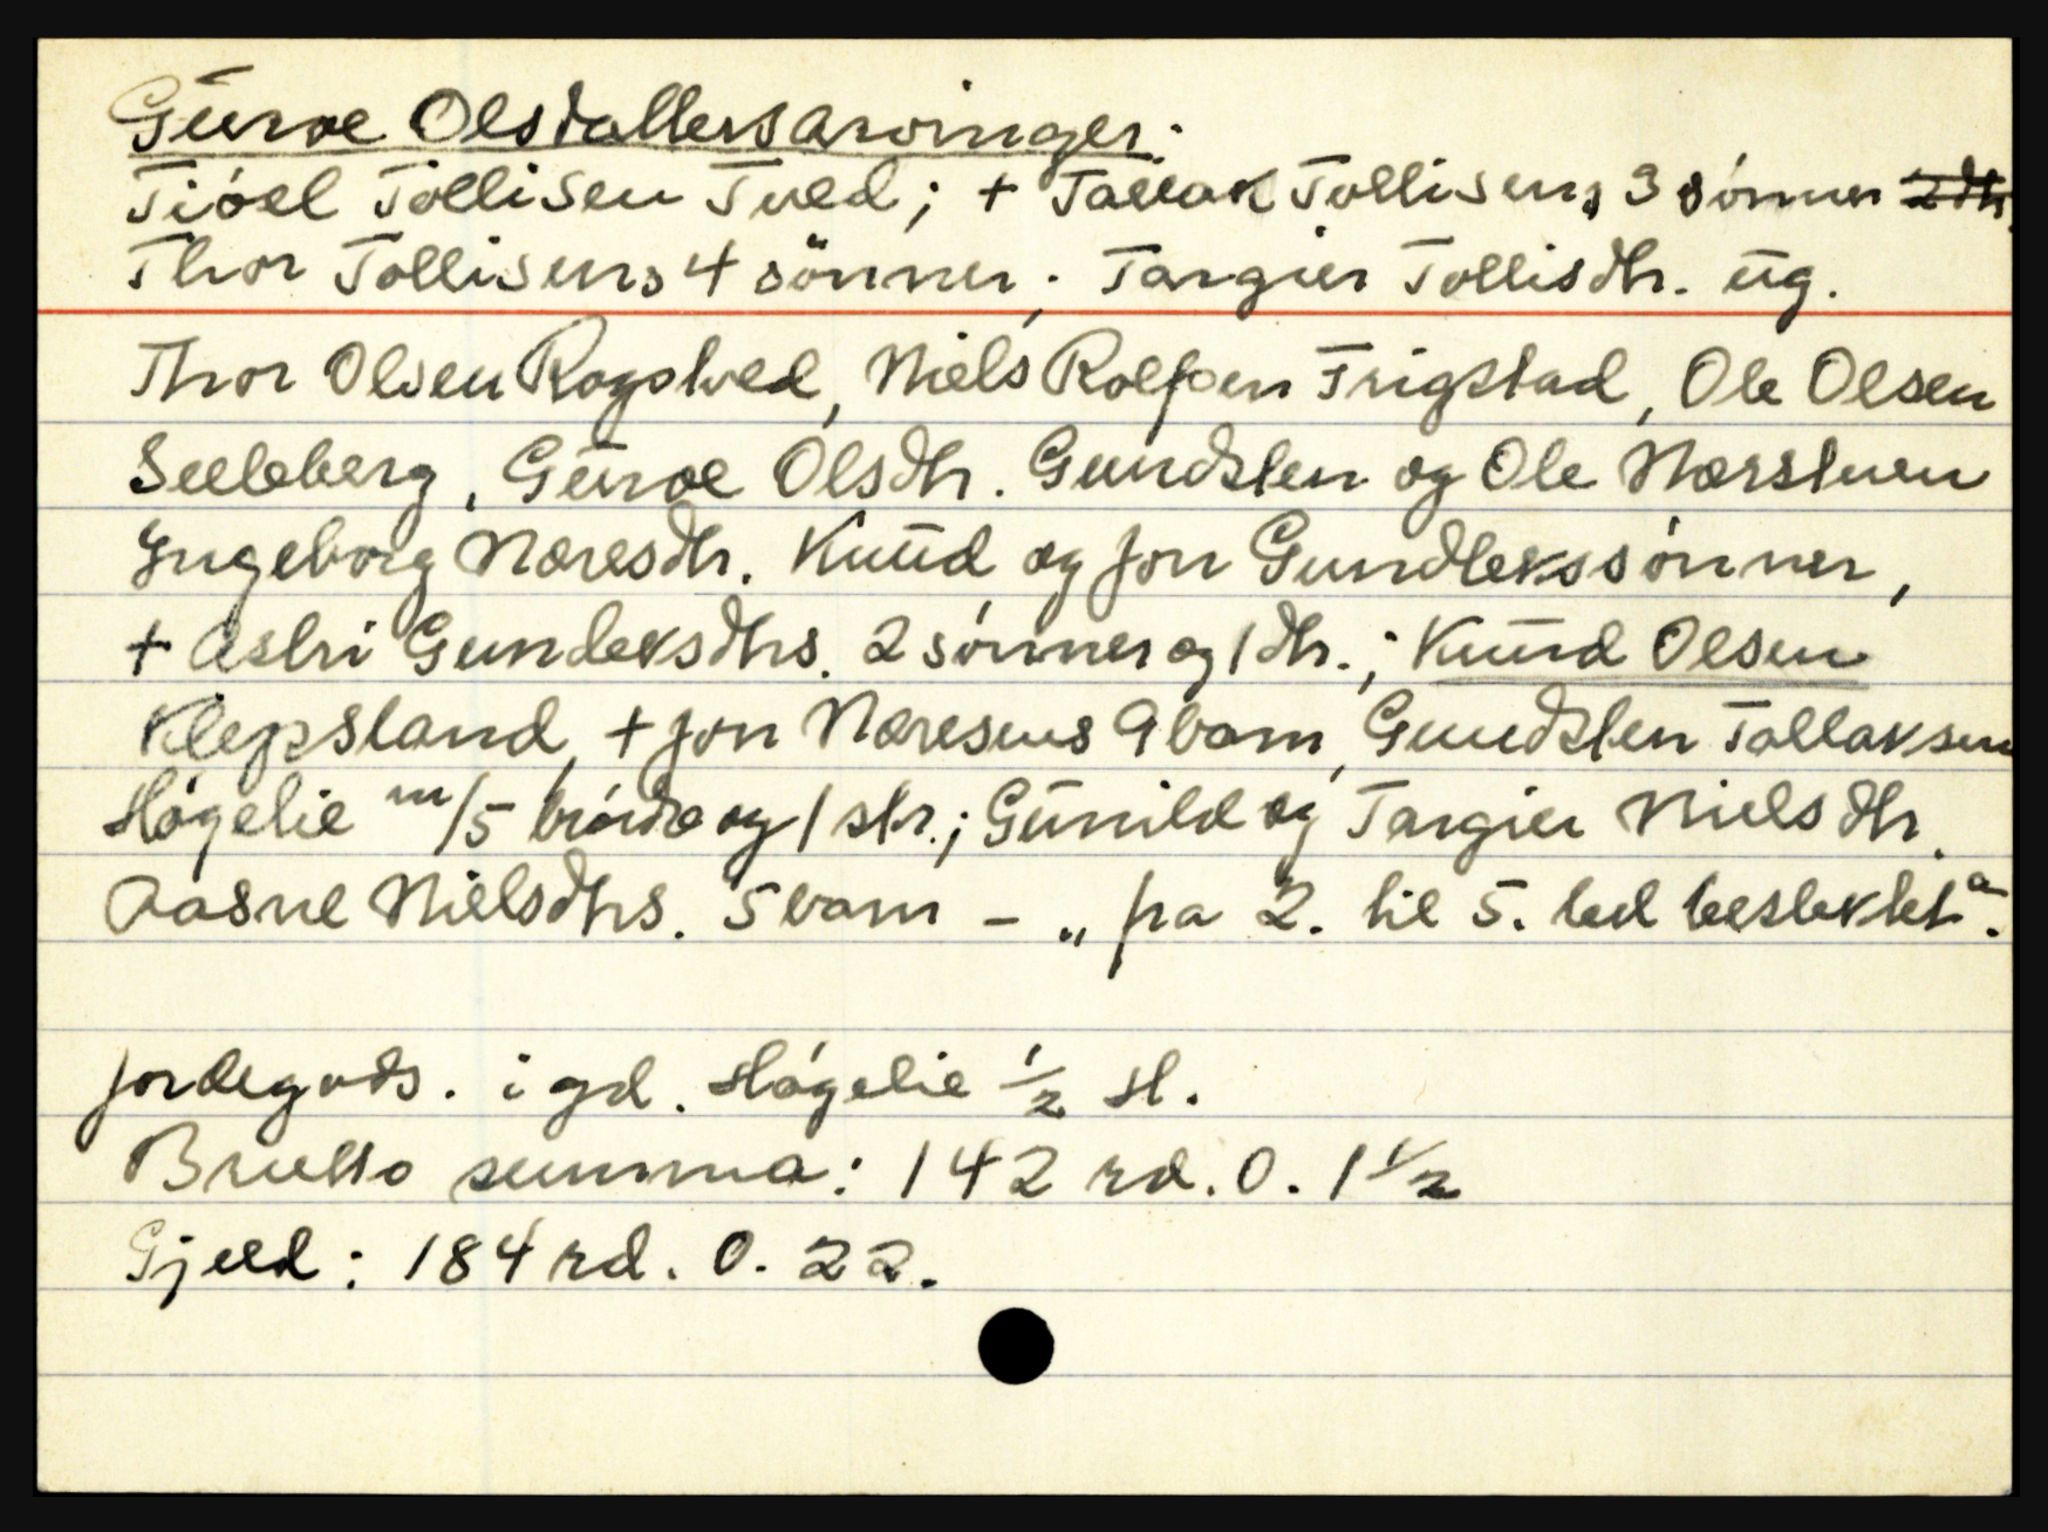 Gūroe Olsdatters arvinger:
Tióel Tollisen Tved; + Tallak Tollisens 3 sónner 2 dtr.
Thor Tollisens 4 sönner; Targier Tollisdtr. ūg.
Thor Olsen Rogstved, Niels Rolfsen Frigstad, Ole Olsen
Seeleberg, Gūroe Olsdtr. Gundsten og Ole Næressønner
Ingeborg Næresdtr. Knūd og Jon Gundlekssónner,
+ Astri Gundleksdtrs. 2 sónner og 1 dtr.; Knūd Olsen
Klepsland, + Jon Næresens 9 barn, Gundsten Tallaksen
Hógelie m/5 bródre og 1 str.; Gūnild og Targier Nielsdtr.
Aasne Nielsdtrs. 5 barn - „fra 2. til 5. led beslektet“.
Jordegods. i gd. Hógelie 1/2 hd.
Brutto summa: 142 rd. 0. 1 1/2
Gjeld: 184 rd. 0. 22.